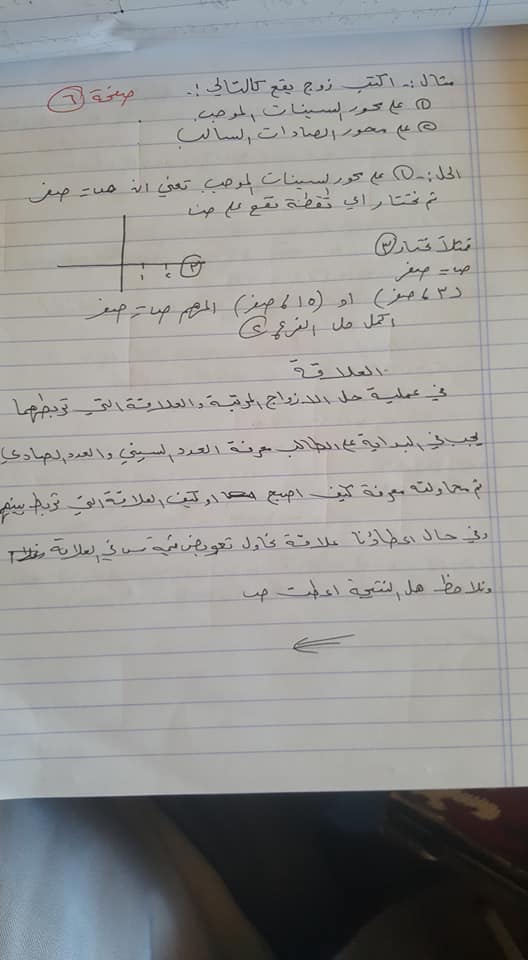 صفحة ٦
مثال:- اكتب زوج يقع كالتالي :-
① على محور السينات الموجب
② على محور الصادات السالب
الحل:- ① على محور السينات الموجب تعني ان ص = صفر
ثم نختار اي نقطة تقع على
١ ٢ ③
فمثلاً نختار ③
ص = صفر
(٣ ، صفر) او (١٥ ، صفر) المهم ص = صفر
اكمل حل الفرع ②
العلاقة
في عملية حل الازواج المرتبة والعلاقة التي تربطهما
يجب في البداية على الطالب معرفة العدد السيني والعدد الصادي
ثم محاولته معرفة كيف اصبح او كيف العلاقة التي تربط بينهم
وفي حال اعطاؤنا علاقة نحاول تعويض قيمة س في العلاقة
ونلاحظ هل النتيجة اعطت ص